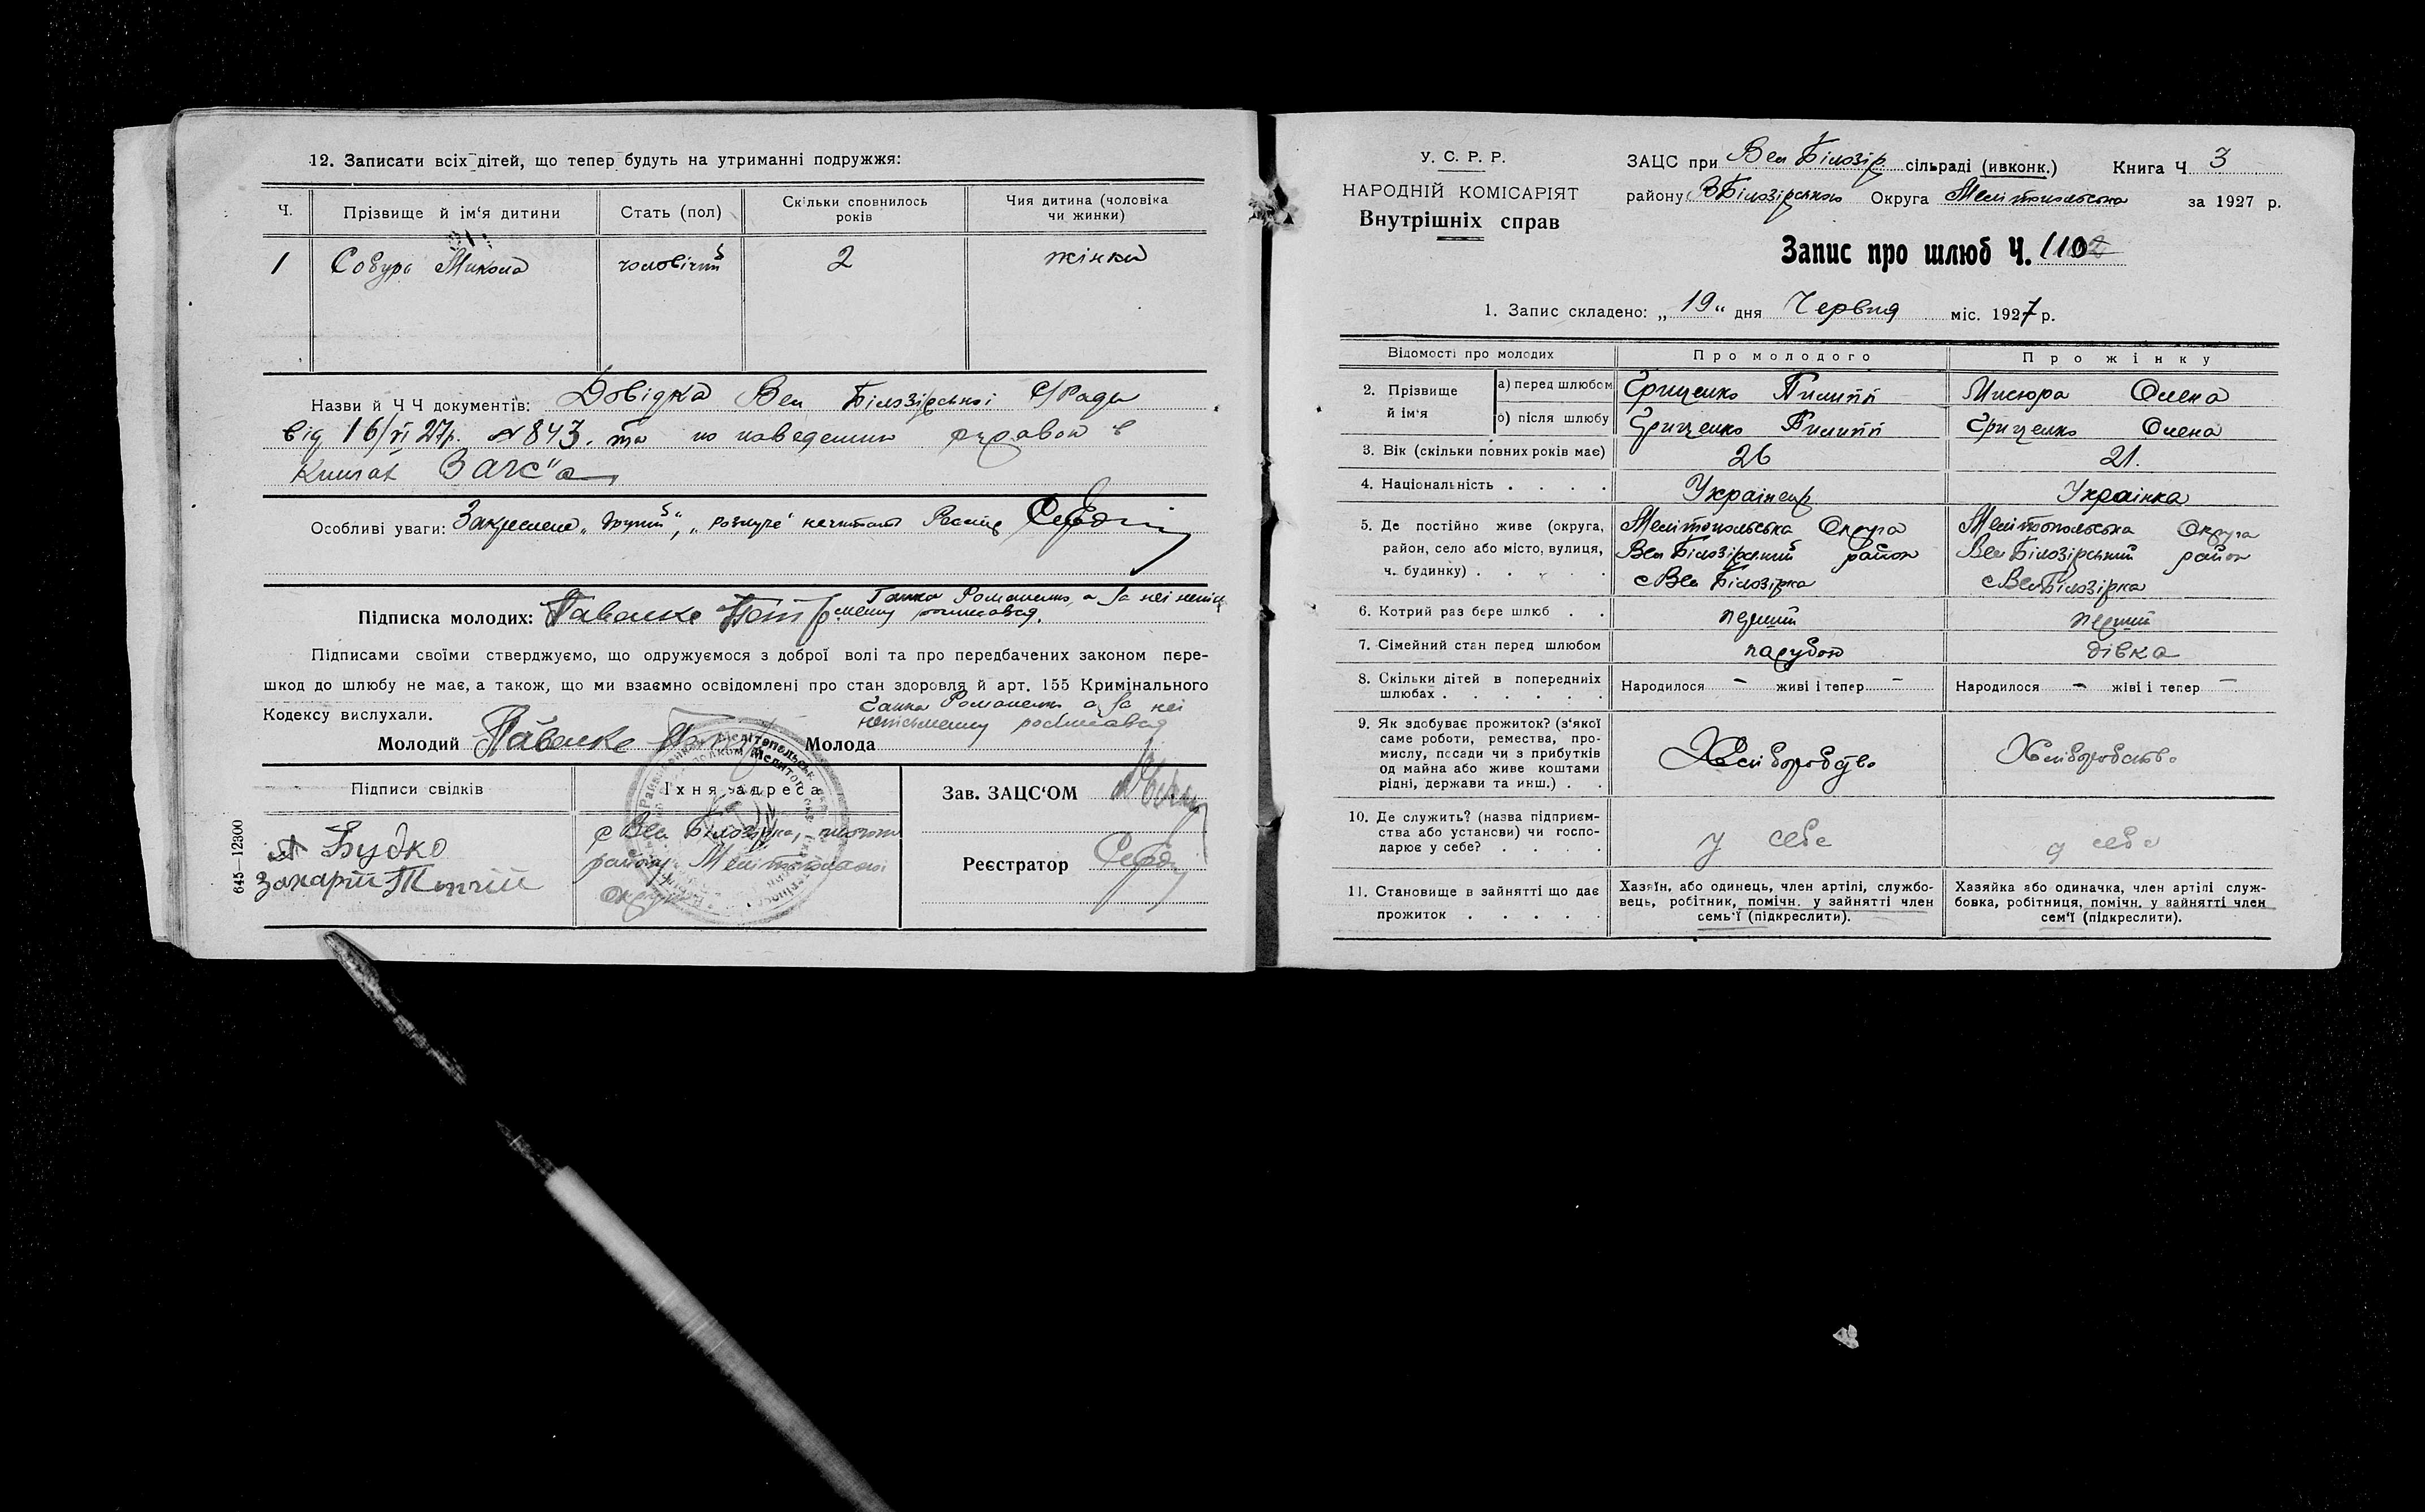 12. Записати всіх дітей, що тепер будуть на утриманні подружжя:
Ч. Прізвище й ім'я дитини Стать (пол) Скільки сповнилось років Чия дитина (чоловіка чи жинки)
1 Микола чоловічий 2 жінки
Назви й Ч Ч документів: Довідка Вел Білозірської С/Ради
від 16/VI 27р. № 843. та по наведеним справам в
книгах Загс"а
Особливі уваги: Закреслено „другий“, „розлуче“ нечитати
Підписка молодих: Павленко Петр Ганна Романенко, а за неі непись
менну росписався.
Підписами своїми стверджуємо, що одружуємося з доброї волі та про передбачених законом пере-
шкод до шлюбу не має, а також, що ми взаємно освідомлені про стан здоровля й арт. 155 Кримінального
Кодексу вислухали.
Ганна Романенко а за неі
неписьменну росписався
Молодий Павленко Молода
Підписи свідків Їхня адреса Зав. ЗАЦС'ОМ
Будко с Вел Білозірка,
Захарій району Мелітопольської
Округи
Реєстратор
645—12300
У. С. Р. Р.
НАРОДНІЙ КОМІСАРІЯТ
Внутрішніх справ
ЗАЦС при Вел Білозір. сільраді (ивконк.) Книга Ч 3
району ВБілозірського Округа Мелітопольська за 1927 р.
Запис про шлюб Ч. 110
1. Запис складено: „19“ дня Червня міс. 1927 р.
Відомості про молодих Про молодого Про жінку
2. Прізвище й ім'я а) перед шлюбом Грищенко Пилипп Мисюра Олена
о) після шлюбу Грищенко Пилипп Грищенко Олена
3. Вік (скільки повних років має) 26 21.
4. Національність . . . . Українець Українка
5. Де постійно живе (округа, Мелітопольська Округа Мелітопольська Округа
район, село або місто, вулиця, Вел Білозірський район Вел Білозірський район
ч. будинку) . . . . . с Вел Білозірка с Вел Білозірка
6. Котрий раз бере шлюб . . перший перший
7. Сімейний стан перед шлюбом парубок дівка
8. Скільки дітей в попередниіх шлюбах . . . . . . Народилося — живі і тепер — Народилося — жіві і тепер —
9. Як здобуває прожиток? (з'якої
саме роботи, ремества, про-
мислу, посади чи з прибутків
од майна або живе коштами
рідні, держави та инш.) . . Хліборобство Хліборобство
10. Де служить? (назва підприєм-
ства або установи) чи госпо-
дарює у себе? . . . . у себе у себе
11. Становище в зайнятті що дає
прожиток . . . . .
Хазяїн, або одинець, член артілі, службо-
вець, робітник, помічн. у зайнятті член
семь'ї (підкреслити).
Хазяйка або одиначка, член артілі служ-
бовка, робітниця, помічн. у зайнятті член
сем'ї (підкреслити).